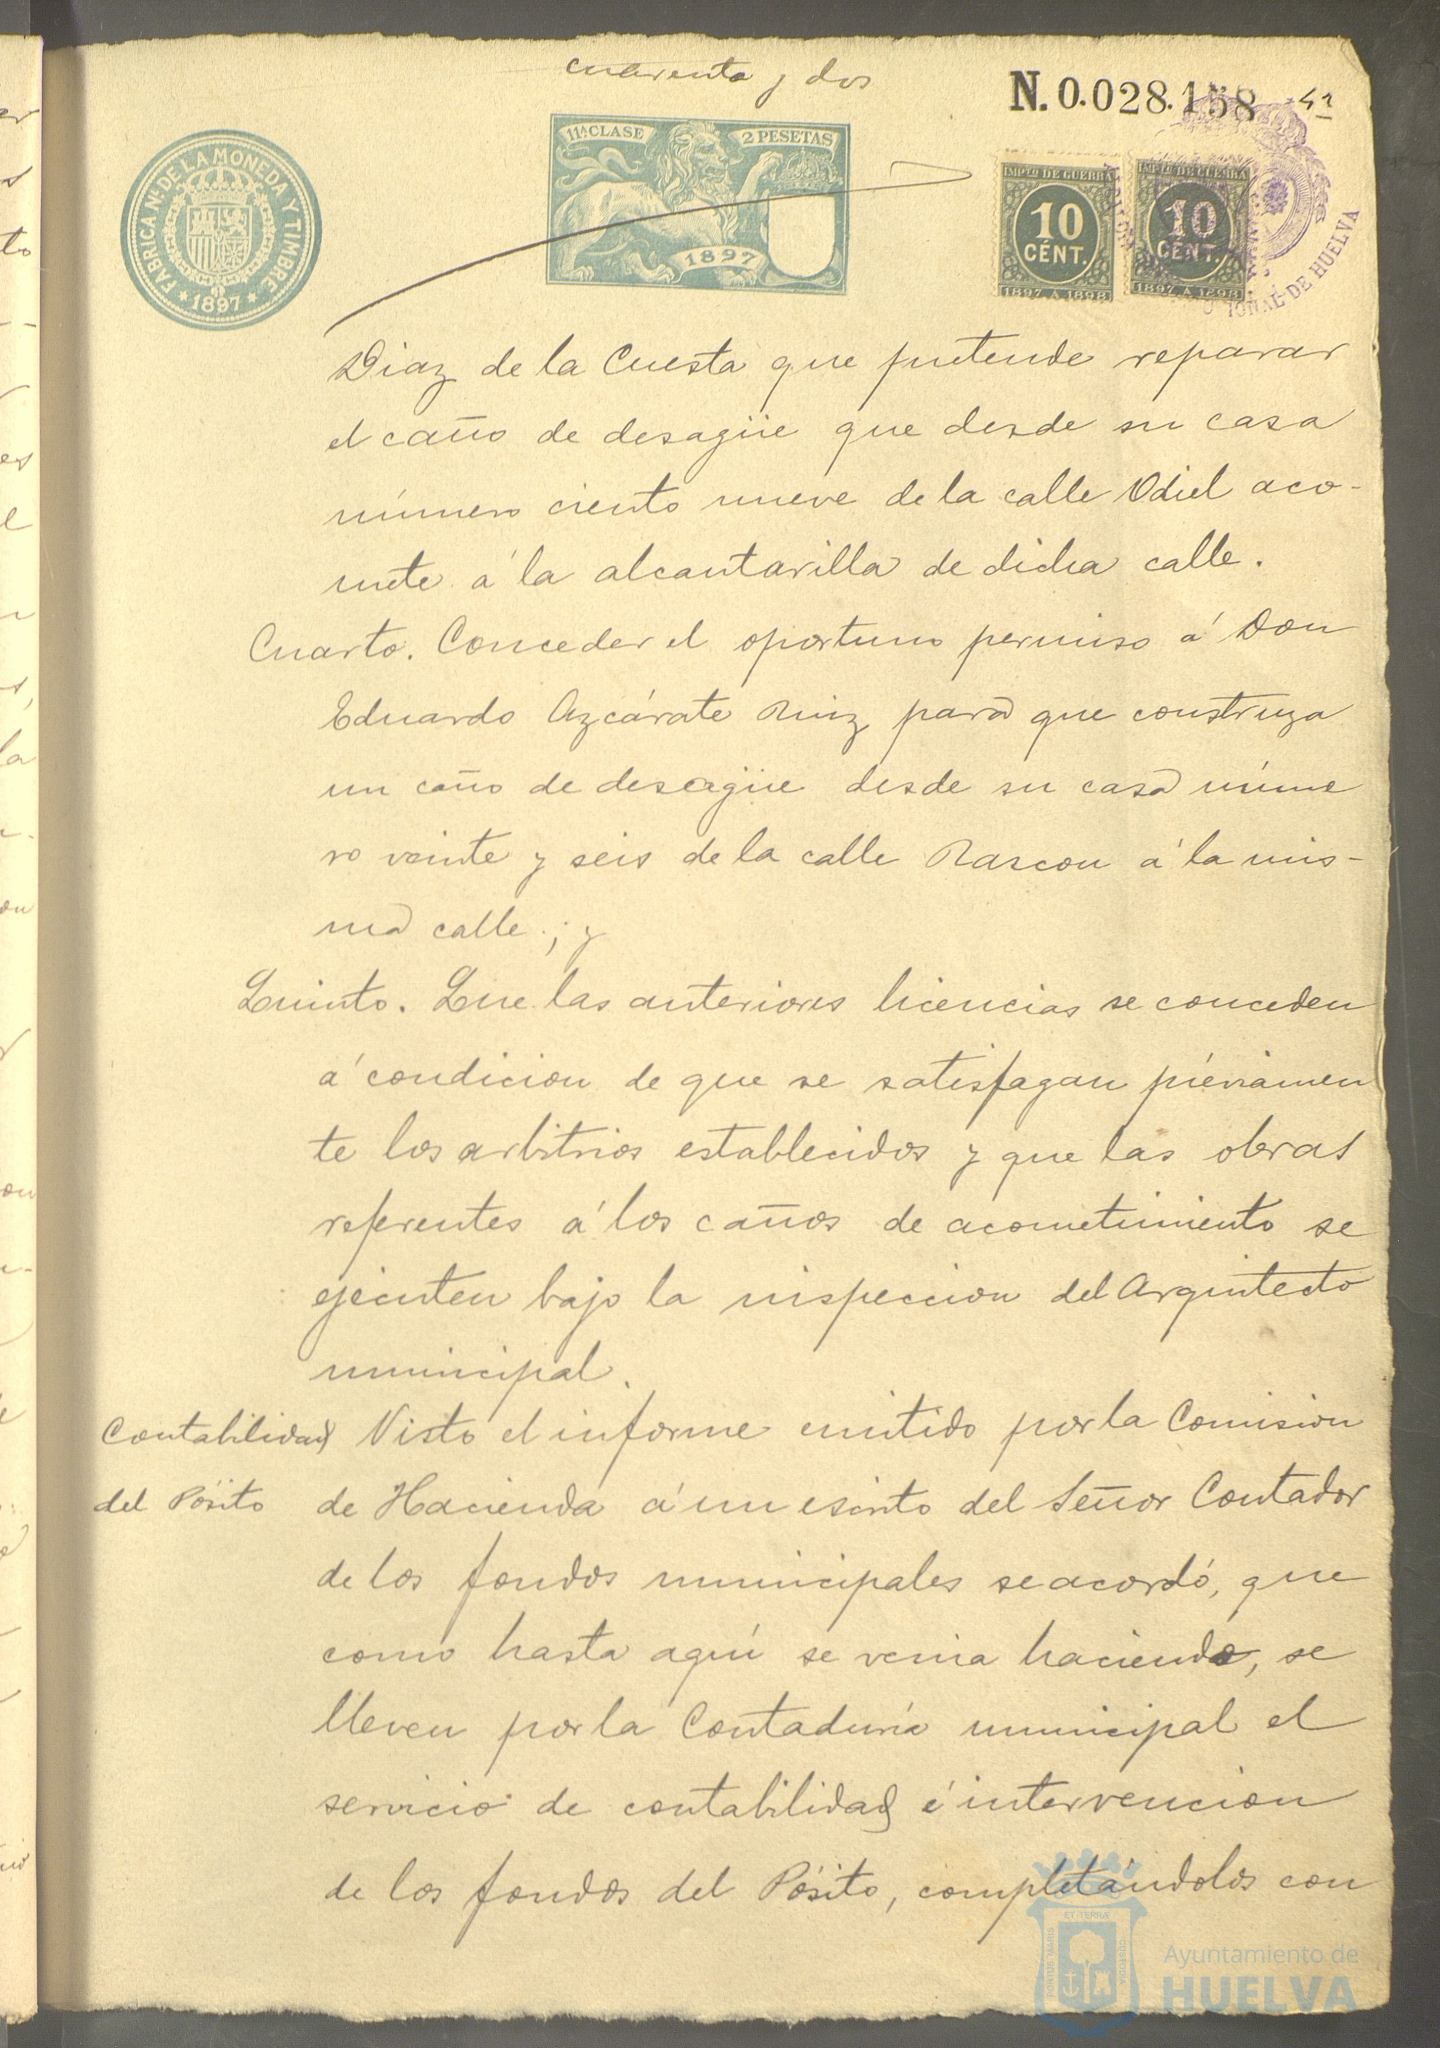 cuarenta y dos
N. 0.028.158
42
FABRICA NL. DE LA MONEDA Y TIMBRE
* 1897 *
11ª CLASE
2 PESETAS
1897
IMPTO DE GUERRA
10
CÉNT.
1897 A 1898
IMPTO DE GUERRA
10
CÉNT.
1897 A 1898
DE HUELVA
Diaz de la Cuesta que pretende reparar
el caño de desagüe que desde su casa
número ciento nueve de la calle Odiel aco-
mete á la alcantarilla de dicha calle.
Cuarto. Conceder el oportuno permiso á Don
Eduardo Azcárate Ruiz para que construya
un caño de desagüe desde su casa núme
ro veinte y seis de la calle Rascon á la mis-
ma calle; y
Quinto. Que las anteriores licencias se conceden
á condicion de que se satisfagan préviamen
te los arbitrios establecidos y que las obras
referentes á los caños de acometimiento se
ejecuten bajo la inspeccion del Arquitecto
municipal.
Contabilidad
del Pósito
Visto el informe emitido por la Comision
de Hacienda á un escrito del Señor Contador
de los fondos municipales se acordó, que
como hasta aquí se venia haciendo, se
lleven por la Contaduría municipal el
servicio de contabilidad é intervencion
de los fondos del Pósito, completándolos con
Ayuntamiento de
HUELVA